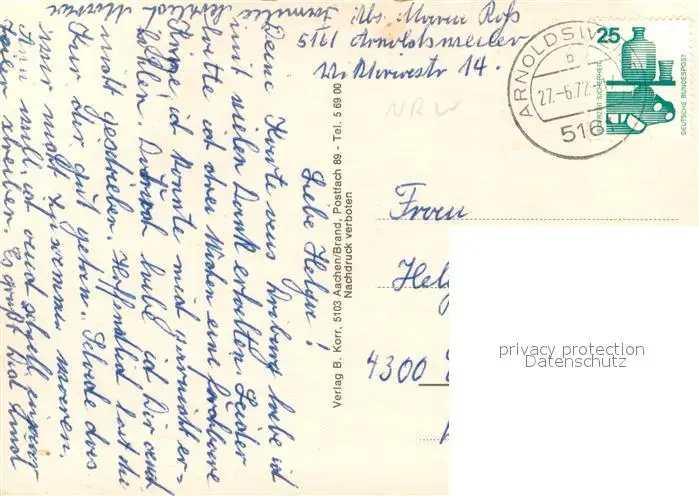 Abs. Maria Roß
5161 Arnoldsweiler
Viktoriastr 14.
NRW
ARNOLDSW
b
27.-6.72
516
25
JEDERZEIT SICHERHEIT
DEUTSCHE BUNDESPOST
Frau
Helg
4300
privacy protection
Datenschutz
Verlag B. Korr, 5103 Aachen/Brand, Postfach 89 - Tel. 5 69 00
Nachdruck verboten
Liebe Helga!
Deine Karte aus Driburg habe ich
mit vielen Dank erhalten. Leider
hatte ich drei Wochen eine furchtbare
Grippe, ich konnte mich garnicht er-
holen. Darum habe ich Dir auch
nicht geschrieben. Hoffentlich hat die
Kur dir gut getan. Schade das
wir nicht zusammen waren.
Nun will ich auch schnell einpaar
Zeilen schreiben. Es grüßt Dich und
Familie herzlich Maria